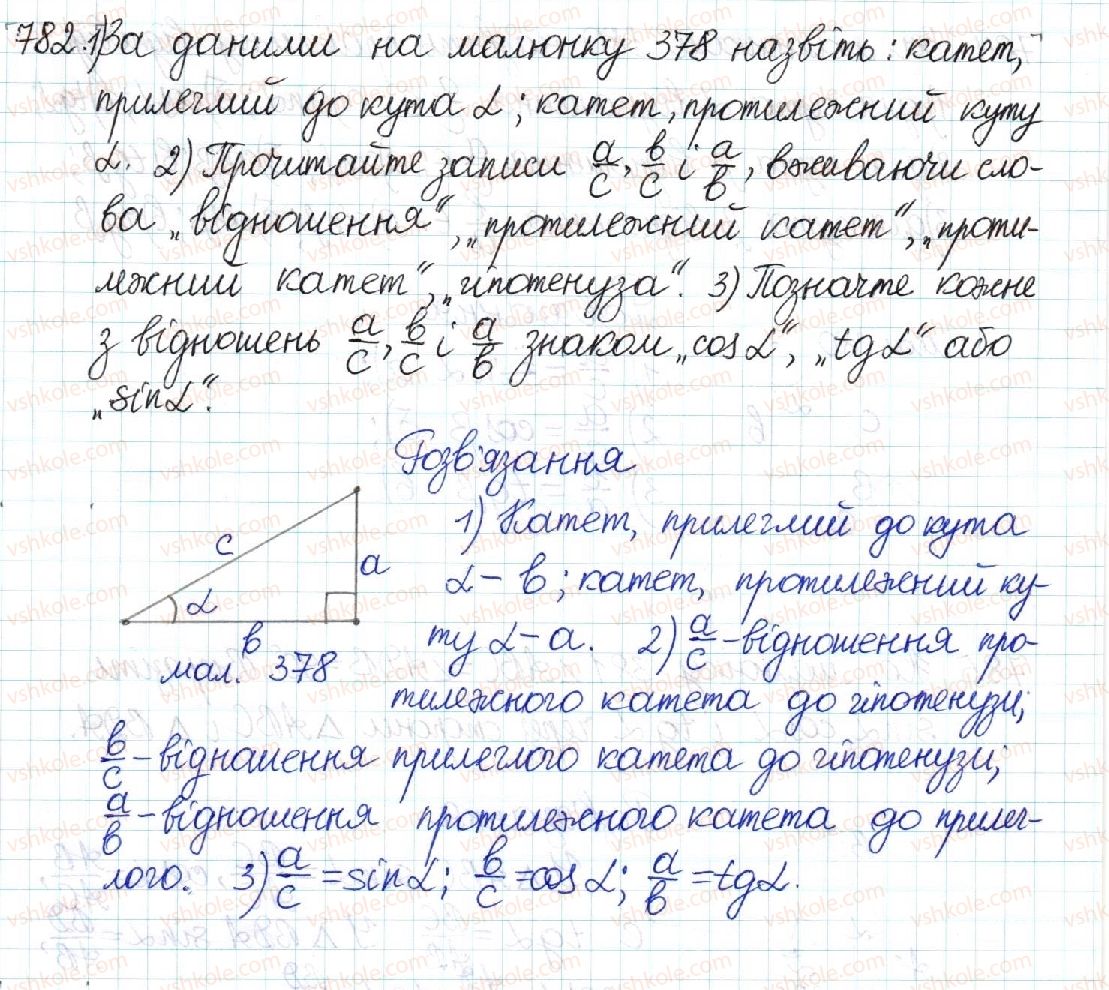 782.1)За даними на малюнку 378 назвіть: катет,
прилеглий до кута α; катет, протилежний куту
α. 2) Прочитайте записи a/c, b/c і a/b, вживаючи сло-
ва „відношення“, „протилежний катет“, „проти-
лежний катет“, „гіпотенуза“. 3) Позначте кожне
з відношень a/c, b/c і a/b знаком „cos α“, „tg α“ або
„sin α“.
Розв'язання
c
a
α
b
мал. 378
1) Катет, прилеглий до кута
α – b; катет, протилежний ку-
ту α – a. 2) a/c – відношення про-
тилежного катета до гіпотенузи;
b/c – відношення прилеглого катета до гіпотенузи;
a/b – відношення протилежного катета до прилег-
лого. 3) a/c = sin α; b/c = cos α; a/b = tg α.
vshkole.com